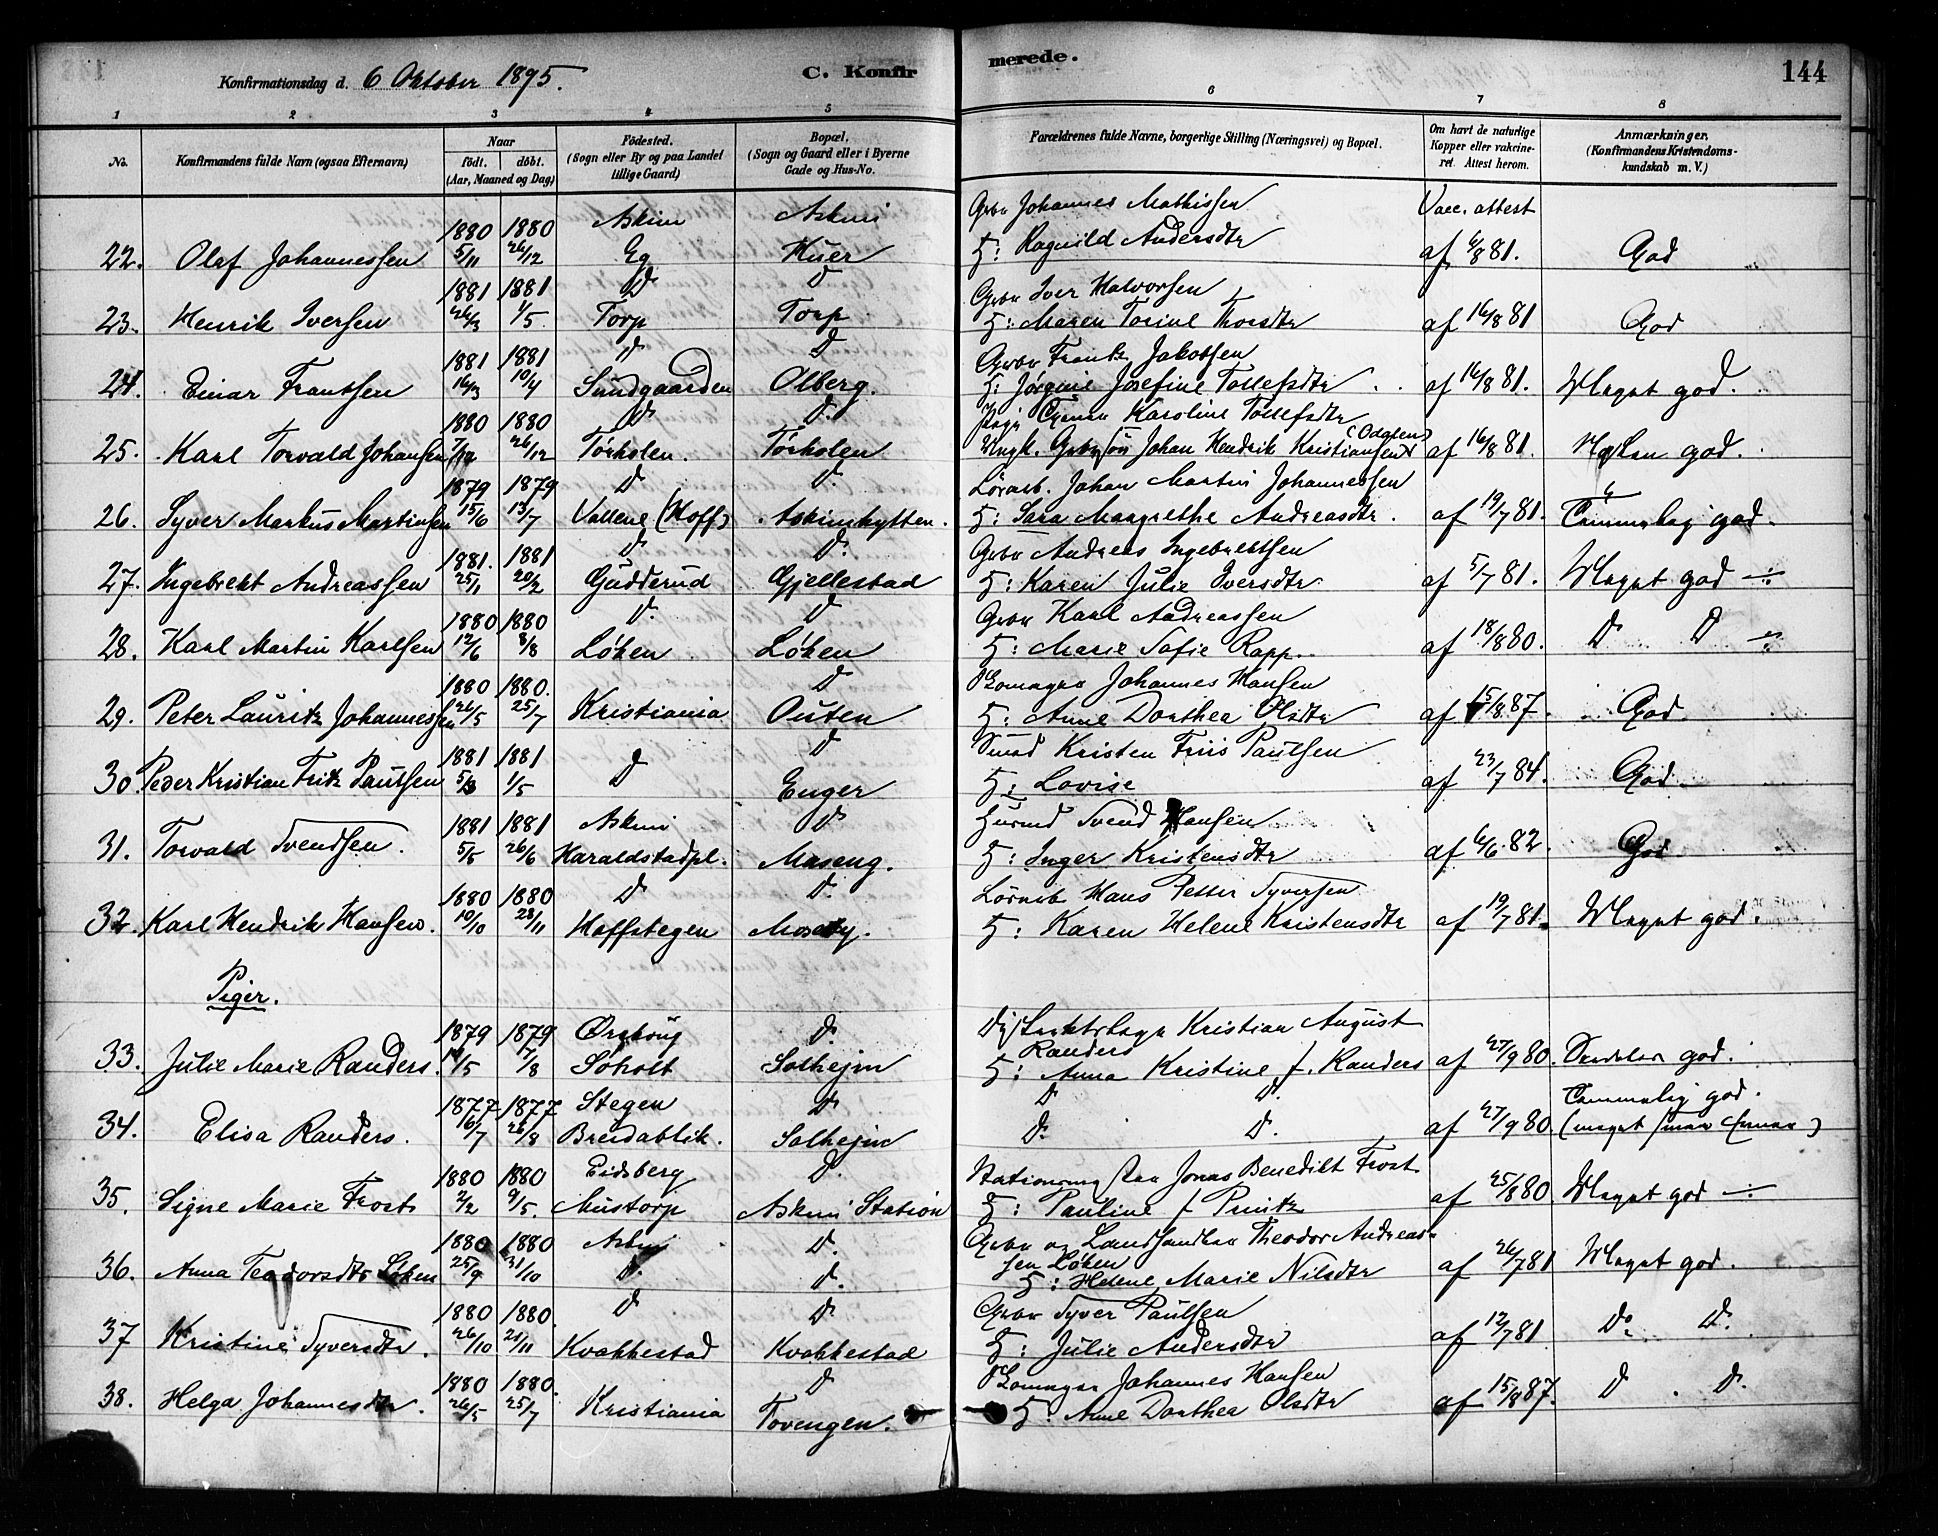 Konfirmationsdag d. 6 Oktober 1895.
C. Konfirmerede.
144
1 2 3 4 5 6 7 8
No.
Konfirmandens fulde Navn (ogsaa Efternavn)
Naar födt. döbt. (Aar, Maaned og Dag)
Födested. (Sogn eller By og paa Landet tillige Gaard)
Bopæl. (Sogn og Gaard eller i Byerne Gade og Hus-No.
Forældrenes fulde Navne, borgerlige Stilling (Næringsvei) og Bopæl.
Om havt de naturlige Kopper eller vakcineret. Attest herom.
Anmærkninger. (Konfirmandens Kristendomskundskab m. V.)
1880 1880 Askim Askim Gbr Johannes Mathissen Vacc. attest
22. Olaf Johannessen 5/11 26/12 Eg Huer H: Ragnild Andersdtr af 6/8 81. God
1881 1881 D D Gbr Iver Halvorsen
23. Henrik Iversen 26/3 1/5 Torp Torp H: Maren Torine Thorsdtr af 16/8 81 God
1881 1881 D D Gbr Frantz Jakobsen
24. Einar Frantsen 16/3 10/4 Sundgaarden Olberg. H: Jørgine Josefine Tollefsdtr af 16/8 81. Meget god.
1880 1880 D D. Pige Karoline Tollefsdtr
25. Karl Torvald Johansen 7/12 26/12 Tørholen. Tørholen Ungk. Gbrsøn Johan Hendrik Kristiansen (Odalen) af 16/8 81. god.
1879 1879 D D. Lørarb. Johan Martin Johannessen
26. Syver Markus Martinsen 15/6 13/7 Vallene (Hoff) Askimhytten. H: Sara Margrethe Andreasdtr. af 19/7 81. Temmelig god.
1881. 1881 D D. Gbr Andreas Ingebrektsen
27. Ingebrekt Andreassen 25/1 20/2 Gudderud Gjellestad H: Karen Julie Iversdtr af 5/7 81. Meget god
1880 1880 D. D Gbr Karl Andreassen
28. Karl Martin Karlsen 12/6 8/8 Løken Løken H: Marie Sofie Rapp. af 18/8 80. D D
1880 1880. D Skomager Johannes Hansen
29. Peter Lauritz Johannessen 26/5 25/7 Kristiania Outen H: Anne Dorthea Olsdtr af 15/8 87. God
1881 1881 D Smed Kristen Friis Paulsen
30 Peder Kristian Fritz Paulsen 5/3 1/5 D Enger H: Lovise af 23/7 84. God
1881 1881 Askim D Husmd Svend Hansen
31. Torvald Svendsen. 5/5 26/6 Haraldstadpl. Maseng. H: Inger Kristensdtr af 6/6 82. God
1880 1880 D D. Lørarb Hans Petter Syversen
32. Karl Hendrik Hansen. 10/10 28/11 Hoffstegen Moseby. H: Karen Helene Kristensdtr af 19/7 81. Meget god.
Piger.
1879 1879 Ørskoug D. Kristian August Randers
33. Julie Marie Randers. 14/5 17/8 Søholt Solhejm H: Anna Kristine f. Randers af 27/9 80. god.
1877 1877 Stegen D D D. Temmelig god.
34. Elisa Randers. 16/7 26/8 Breidablik. Solhejm D. D. af 27/9 80. (meget
1880 1880 Eidsberg D. Jonas Benedikt Frost
35. Signe Marie Frost 2/2 9/5. Mustorp Askim Station H: Pauline f Printz af 25/8 80 Meget god
1880 1880 Askim D. Gbr og Landhandler Theodor Andreassen Løken
36. Anna Teodorsdtr Løken 25/9 31/10 D. D. H: Helene Marie Nilsdtr af 26/7 81 Meget god.
1880 1880. D D Gbr Syver Paulsen
37 Kristine Syversdtr. 26/10 21/11 Kvakkestad Kvakkestad H: Julie Andersdtr af 12/7 81 D. D.
1880 1880. D Skomager Johannes Hansen
38. Helga Johannesdtr. 26/5 25/7 Kristiania Tovengen. H: Anne Dorthea Olsdtr af 15/8 87. D. D.